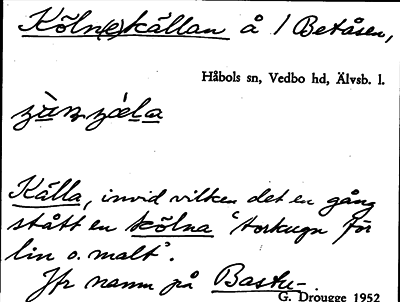 Köln(e)källan å 1 Betåsen,
Håbols sn, Vedbo hd, Älvsb. l.
Källa, invid vilken det en gång
stått en kölna 'torkugn för
lin o. malt'.
Jfr namn på Bastu-.
G. Drougge 1952